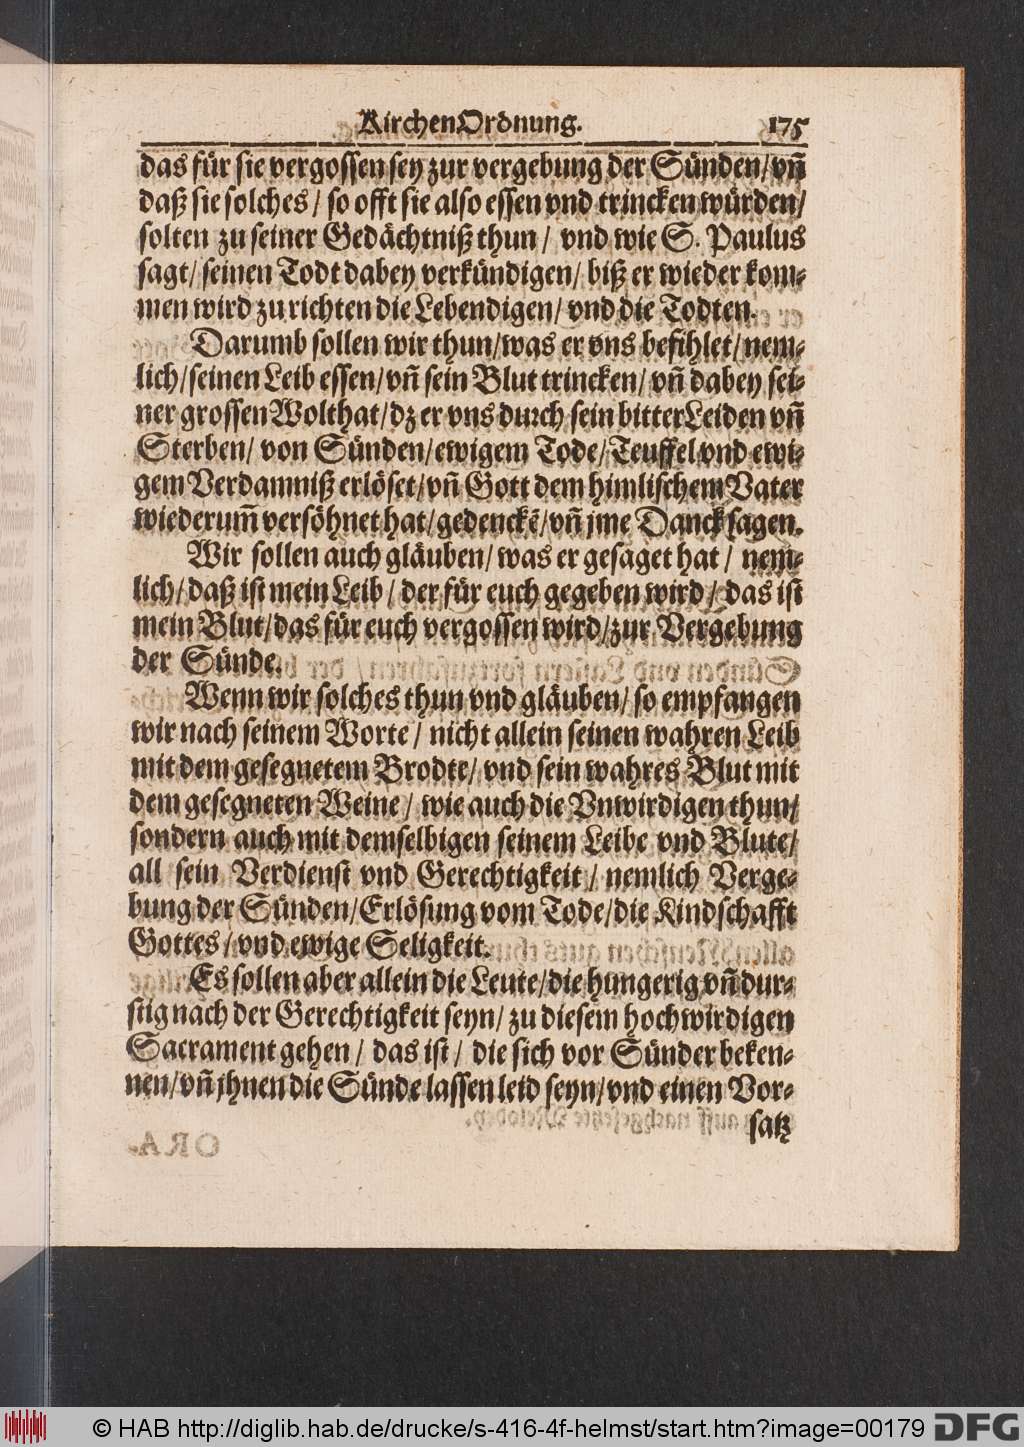 KirchenOrdnung. 175
das für sie vergossen sey zur vergebung der Sünden/vn̄
daß sie solches/ so offt sie also essen vnd trincken würden/
solten zu seiner Gedächtniß thun/ vnd wie S. Paulus
sagt/ seinen Todt dabey verkündigen/ biß er wieder kom-
men wird zu richten die Lebendigen/ vnd die Todten.
Darumb sollen wir thun/was er vns befihlet/nem-
lich/seinen Leib essen/vn̄ sein Blut trincken/ vn̄ dabey sei-
ner grossen Wolthat/dz er vns durch sein bitter Leiden vn̄
Sterben/ von Sünden/ewigem Tode/Teuffel vnd ewi-
gem Verdamniß erlöset/vn̄ Gott dem himlischem Vater
wiederum̄ versöhnet hat/gedenckē/vn̄ jme Danck sagen.
Wir sollen auch gläuben/was er gesaget hat/ nem-
lich/daß ist mein Leib/ der für euch gegeben wird/ das ist
mein Blut/das für euch vergossen wird/zur Vergebung
der Sünde.
Wenn wir solches thun vnd gläuben/ so empfangen
wir nach seinem Worte/ nicht allein seinen wahren Leib
mit dem gesegnetem Brodte/ vnd sein wahres Blut mit
dem gesegneten Weine/ wie auch die Vnwirdigen thun/
sondern auch mit demselbigen seinem Leibe vnd Blute/
all sein Verdienst vnd Gerechtigkeit/ nemlich Verge-
bung der Sünden/Erlösung vom Tode/die Kindschafft
Gottes/ vnd ewige Seligkeit.
Es sollen aber allein die Leute/die hungerig vn̄ dur-
stig nach der Gerechtigkeit seyn/ zu diesem hochwirdigen
Sacrament gehen/ das ist/ die sich vor Sünder beken-
nen/vn̄ jhnen die Sünde lassen leid seyn/vnd einen Vor-
satz
© HAB http://diglib.hab.de/drucke/s-416-4f-helmst/start.htm?image=00179 DFG